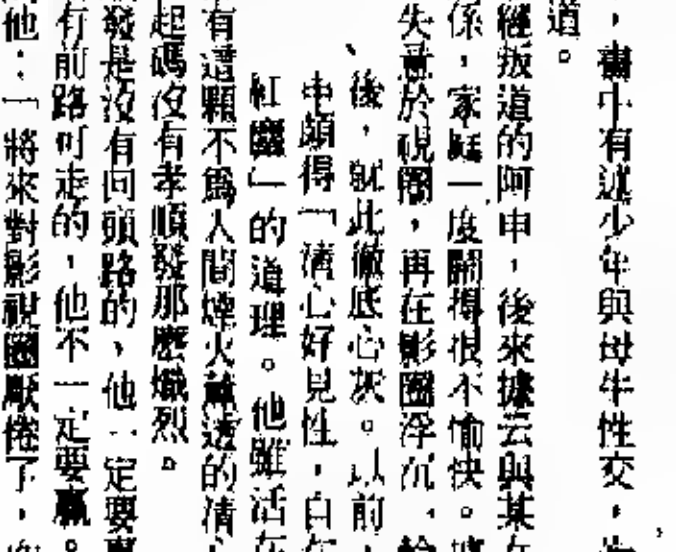 ，書中有述少年與母牛性交，
道。
經叛道的阿申，後來據云與某
係，家庭一度鬧得很不愉快。
失意於視圈，再在影圈浮沉，
、後，就此徹底心灰。以前，
中頗得「清心好見性，白
紅塵」的道理。他雖活在
有這顆不爲人間煙火薰透的清
起碼沒有孝順發那麽熾烈。
發是沒有回頭路的，他一定要
有前路可走的，他不一定要贏。
他：「將來對影視圈厭倦了，